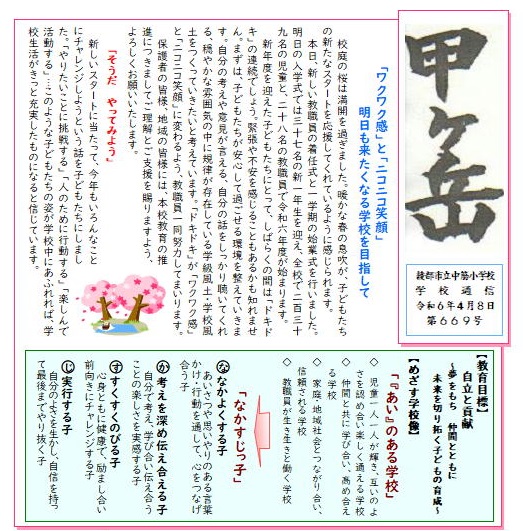 甲ヶ岳
綾部市立中筋小学校
学校通信
令和6年4月8日
第669号
「ワクワク感」と「ニコニコ笑顔」
明日も来たくなる学校を目指して
校庭の桜は満開を過ぎました。暖かな春の息吹が、子どもたち
の新たなスタートを応援してくれているように感じられます。
本日、新しい教職員の着任式と一学期の始業式を行いました。
明日の入学式では三十七名の新一年生を迎え、全校で二百三十
九名の児童と、二十八名の教職員で令和六年度が始まります。
新年度を迎えた子どもたちにとって、しばらくの間は「ドキド
キ」の連続でしょう。緊張や不安を感じることもあるかも知れませ
ん。まずは、子どもたちが安心して過ごせる環境を整えていきま
す。自分の考えや意見が言える、自分の話をしっかり聴いてくれ
る、穏やかな雰囲気の中に規律が存在している学級風土・学校風
土をつくっていきたいと考えています。「ドキドキ」が「ワクワク感」
と「ニコニコ笑顔」に変わるよう、教職員一同努力してまいります。
保護者の皆様、地域の皆様には、本校教育の推
進につきましてご理解とご支援を賜りますよう、
よろしくお願いいたします。
「そうだ　やってみよう」
新しいスタートに当たって、今年もいろんなこと
にチャレンジしようという話を子どもたちにしまし
た。「やりたいことに挑戦する」「人のために行動する」「楽しんで
活動する」…このような子どもたちの姿が学校中にあふれれば、学
校生活がきっと充実したものになると信じています。
【教育目標】
自立と貢献
～夢をもち　仲間とともに
未来を切り拓く子どもの育成～
【めざす学校像】
「『あい』のある学校」
◇　児童一人一人が輝き、互いのよ
さを認め合い楽しく通える学校
◇　仲間と共に学び合い、高め合え
る学校
◇　家庭・地域社会とつながり合い、
信頼される学校
◇　教職員が生き生きと働く学校
「なかすじっ子」
なかよくする子
あいさつや思いやりのある言葉
かけ・行動を通して、心をつなげ
合う子
か考えを深め伝え合える子
自分で考え、学び合い伝え合う
ことの楽しさを実感する子
すくすくのびる子
心身ともに健康で、励まし合い
前向きにチャレンジする子
じ実行する子
自分のよさを生かし、自信を持っ
て最後までやり抜く子